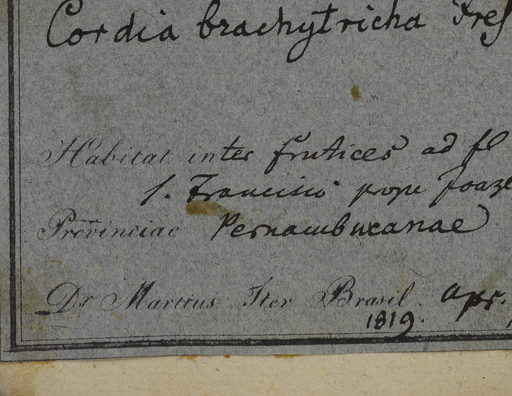 Cordia brachytricha Fres
Habitat inter frutices ad fl
s. Francisci prope Joaze
Provinciae Pernambucanae
Dr Martius Iter Brasil. apr.
1819.